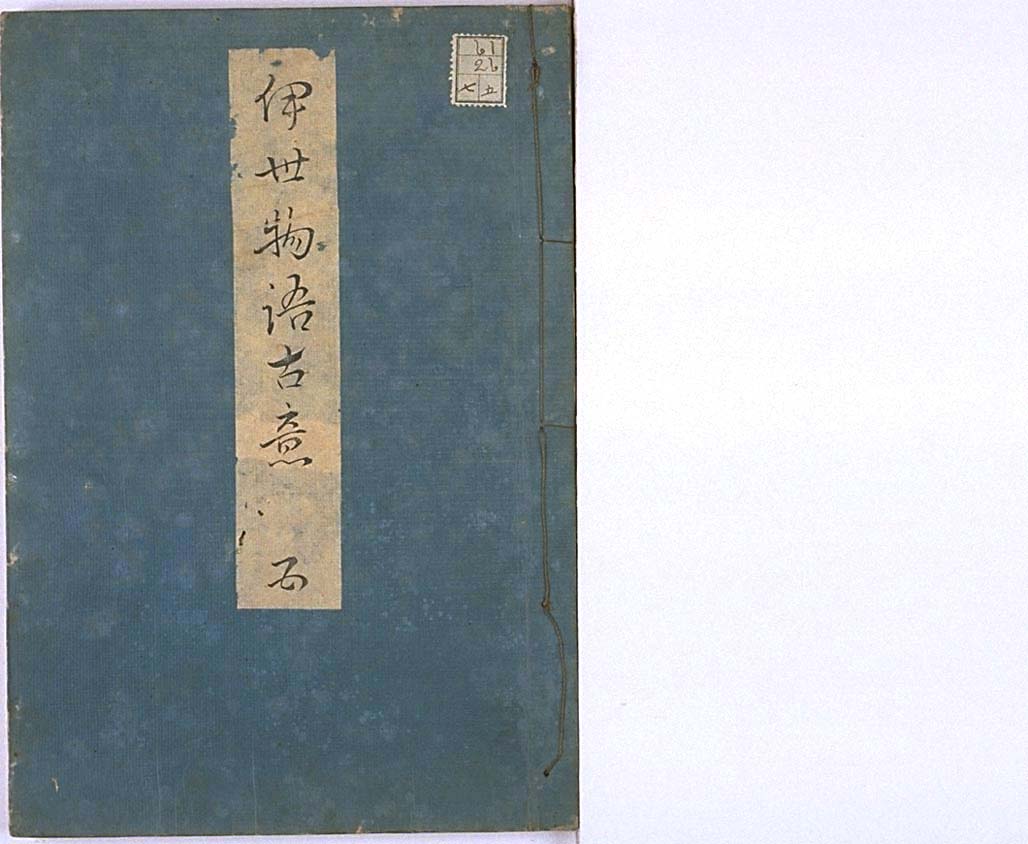 伊世物語古意 五
61
26
五 七